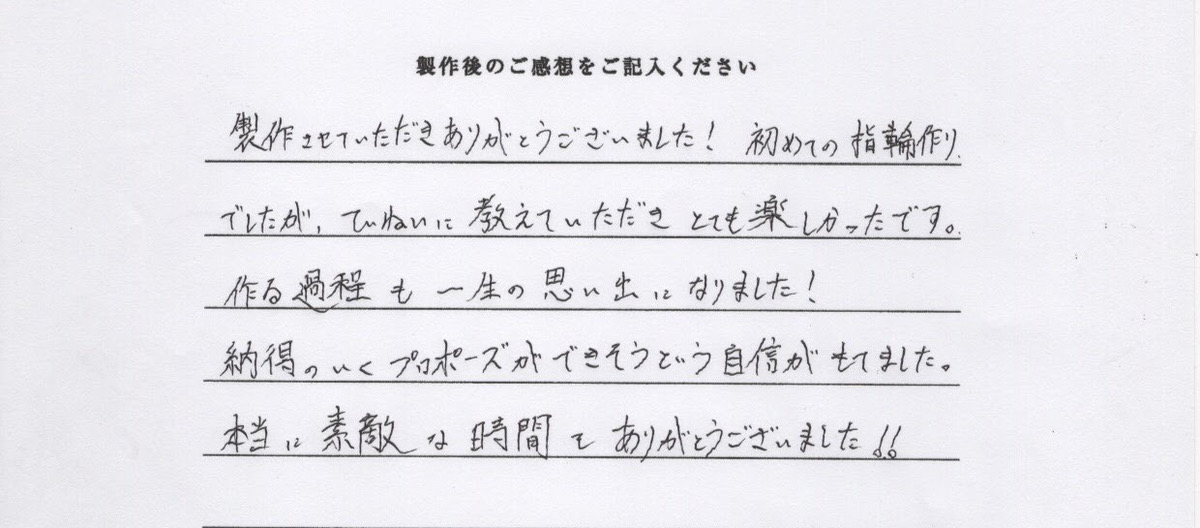 製作後のご感想をご記入ください
製作させていただきありがとうございました! 初めての指輪作り
でしたが、ていねいに教えていただきとても楽しかったです。
作る過程も一生の思い出になりました!
納得のいくプロポーズができそうという自信がもてました。
本当に素敵な時間をありがとうございました!!